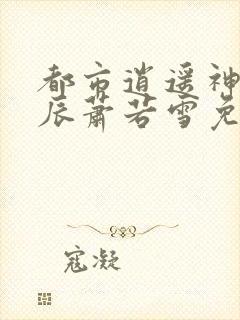 都市逍遥神
辰萧若雪免
寇凝